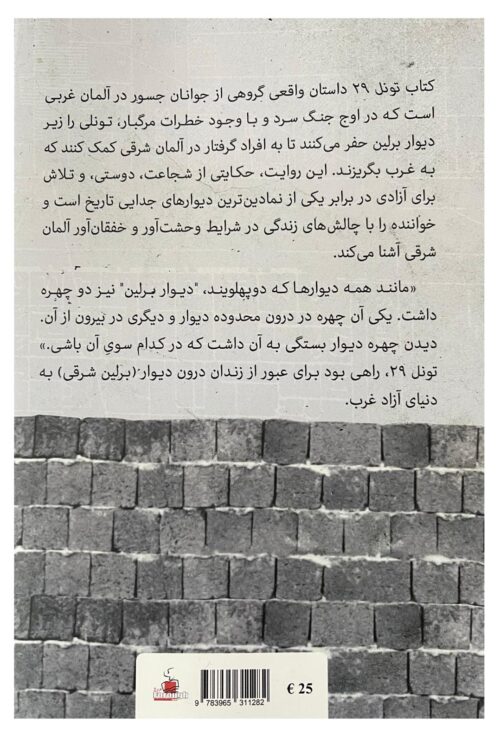 کتاب تونل ۲۹ داستان واقعی گروهی از جوانان جسور در آلمان غربی
است که در اوج جنگ سرد و با وجود خطرات مرگبار، تونلی را زیر
دیوار برلین حفر می‌کنند تا به افراد گرفتار در آلمان شرقی کمک کنند که
به غرب بگریزند. این روایت، حکایتی از شجاعت، دوستی، و تلاش
برای آزادی در برابر یکی از نمادین‌ترین دیوارهای جدایی تاریخ است و
خواننده را با چالش‌های زندگی در شرایط وحشت‌آور و خفقان‌آور آلمان
شرقی آشنا می‌کند.
«مانند همه دیوارها که دوپهلویند، "دیوار برلین" نیز دو چهره
داشت. یکی آن چهره در درون محدوده دیوار و دیگری در بیرون از آن.
دیدن چهره دیوار بستگی به آن داشت که در کدام سویِ آن باشی.»
تونل ۲۹، راهی بود برای عبور از زندان درون دیوار (برلین شرقی) به
دنیای آزاد غرب.
€ 25
9 783965 311282